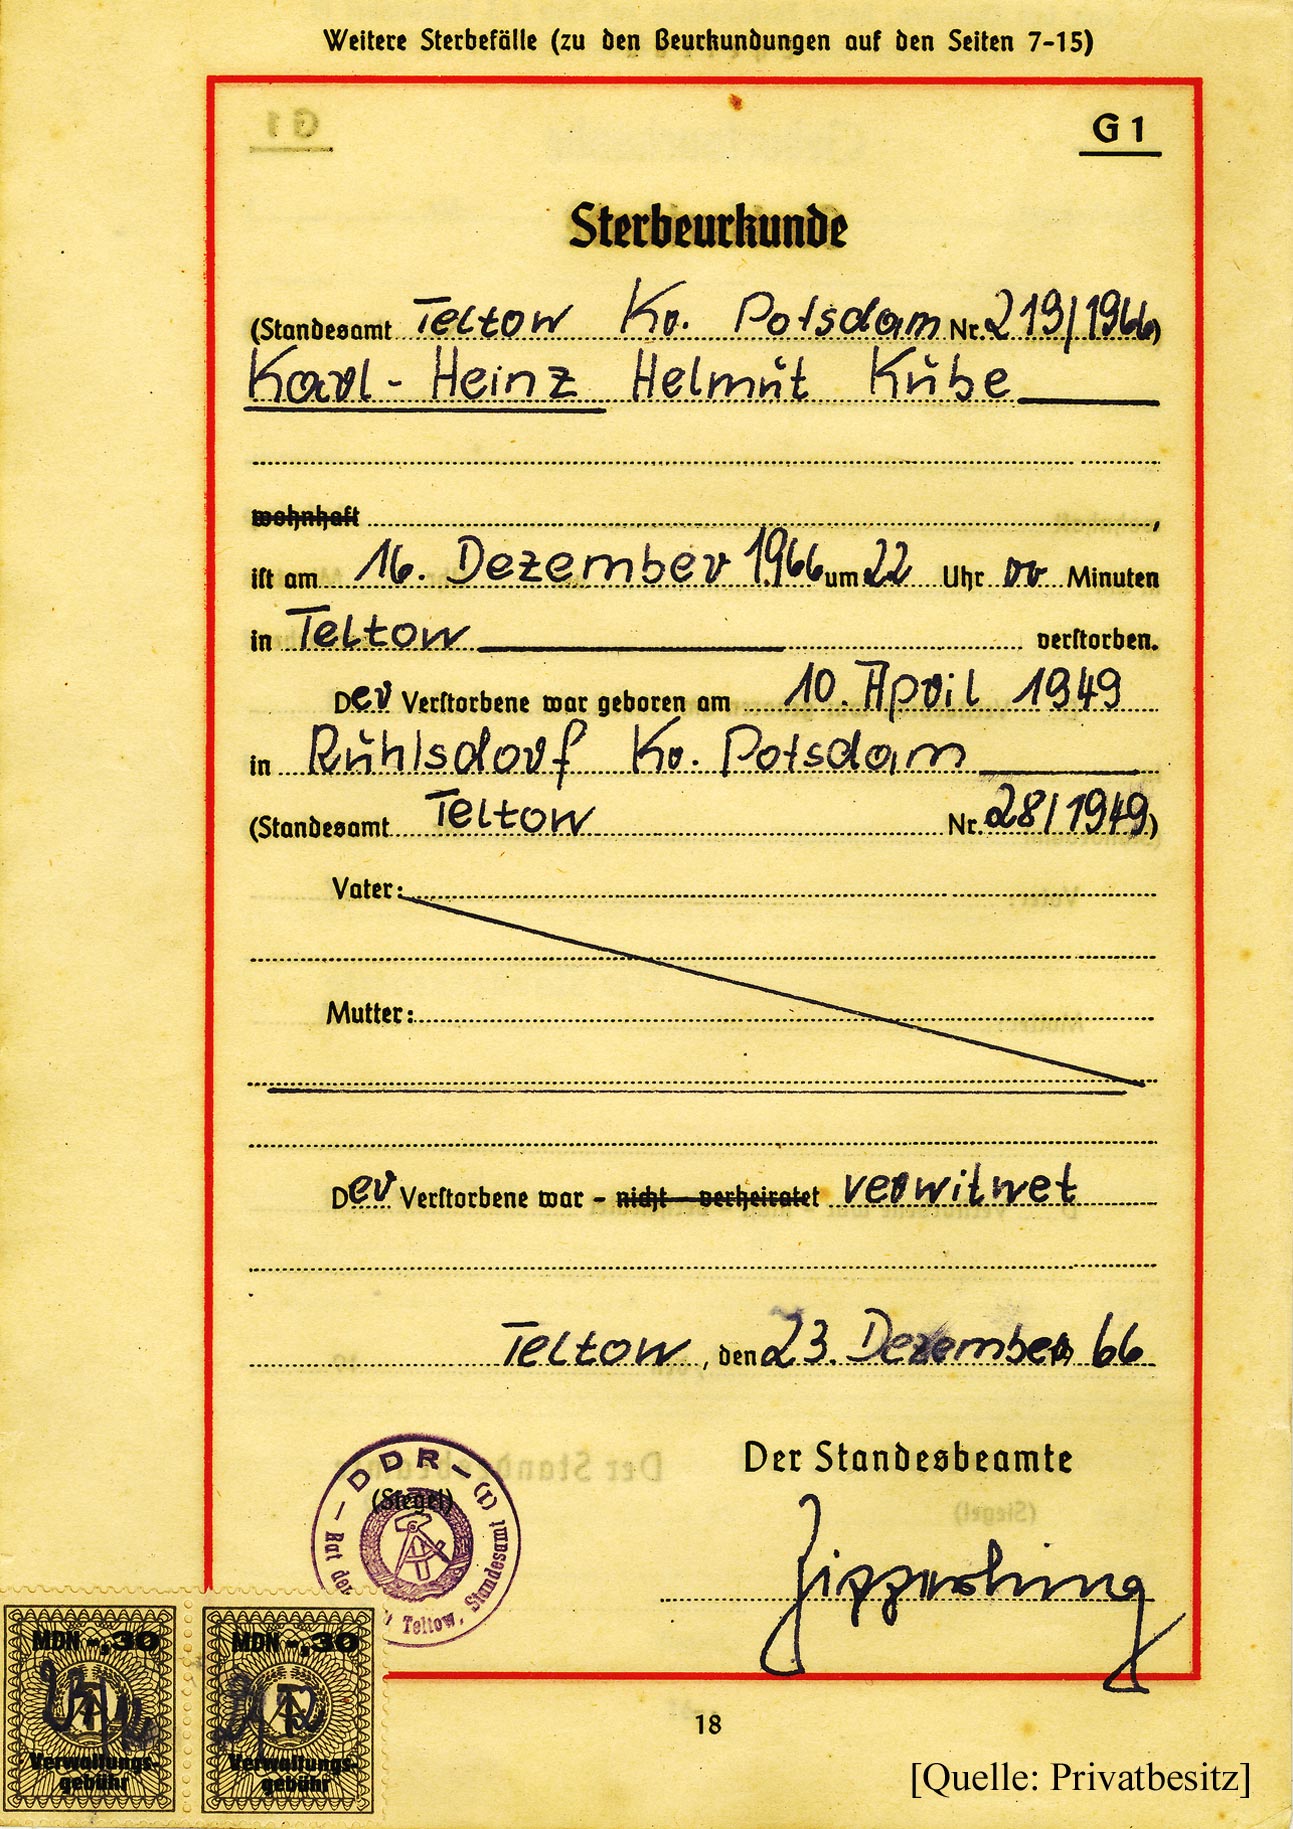 Weitere Sterbefälle (zu den Beurkundungen auf den Seiten 7-15)
G 1
Sterbeurkunde
(Standesamt Teltow Kr. Potsdam Nr. 219/1966)
Karl-Heinz Helmut Kube
wohnhaft ,
ist am 16. Dezember 1966 um 22 Uhr 00 Minuten
in Teltow verstorben.
Der Verstorbene war geboren am 10. April 1949
in Ruhlsdorf Kr. Potsdam
(Standesamt Teltow Nr. 28/1949)
Vater:
Mutter:
Der Verstorbene war - nicht - verheiratet verwitwet
Teltow, den 23. Dezember 66
Der Standesbeamte
(Siegel)
- DDR - (1)
Rat der Teltow, Standesamt
MDN -,30 MDN -,30
Verwaltungs- Verwaltungs-
gebühr gebühr
18
[Quelle: Privatbesitz]